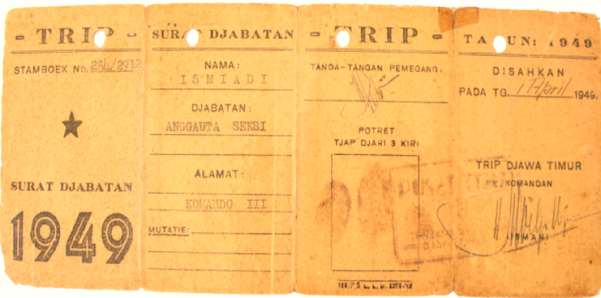 - TRIP -
STAMBOEK No.
SURAT DJABATAN
1949
SURAT DJABATAN
NAMA:
ISMIADI
DJABATAN:
ANGGAUTA SEKSI
ALAMAT:
KOMANDO III
MUTATIE:
- TRIP -
TANDA-TANGAN PEMEGANG:
POTRET
TJAP DJARI 3 KIRI
TAHUN: 1949
DISAHKAN
PADA TG. 1 April 1949.
TRIP DJAWA TIMUR
KOMANDAN
ISMAN